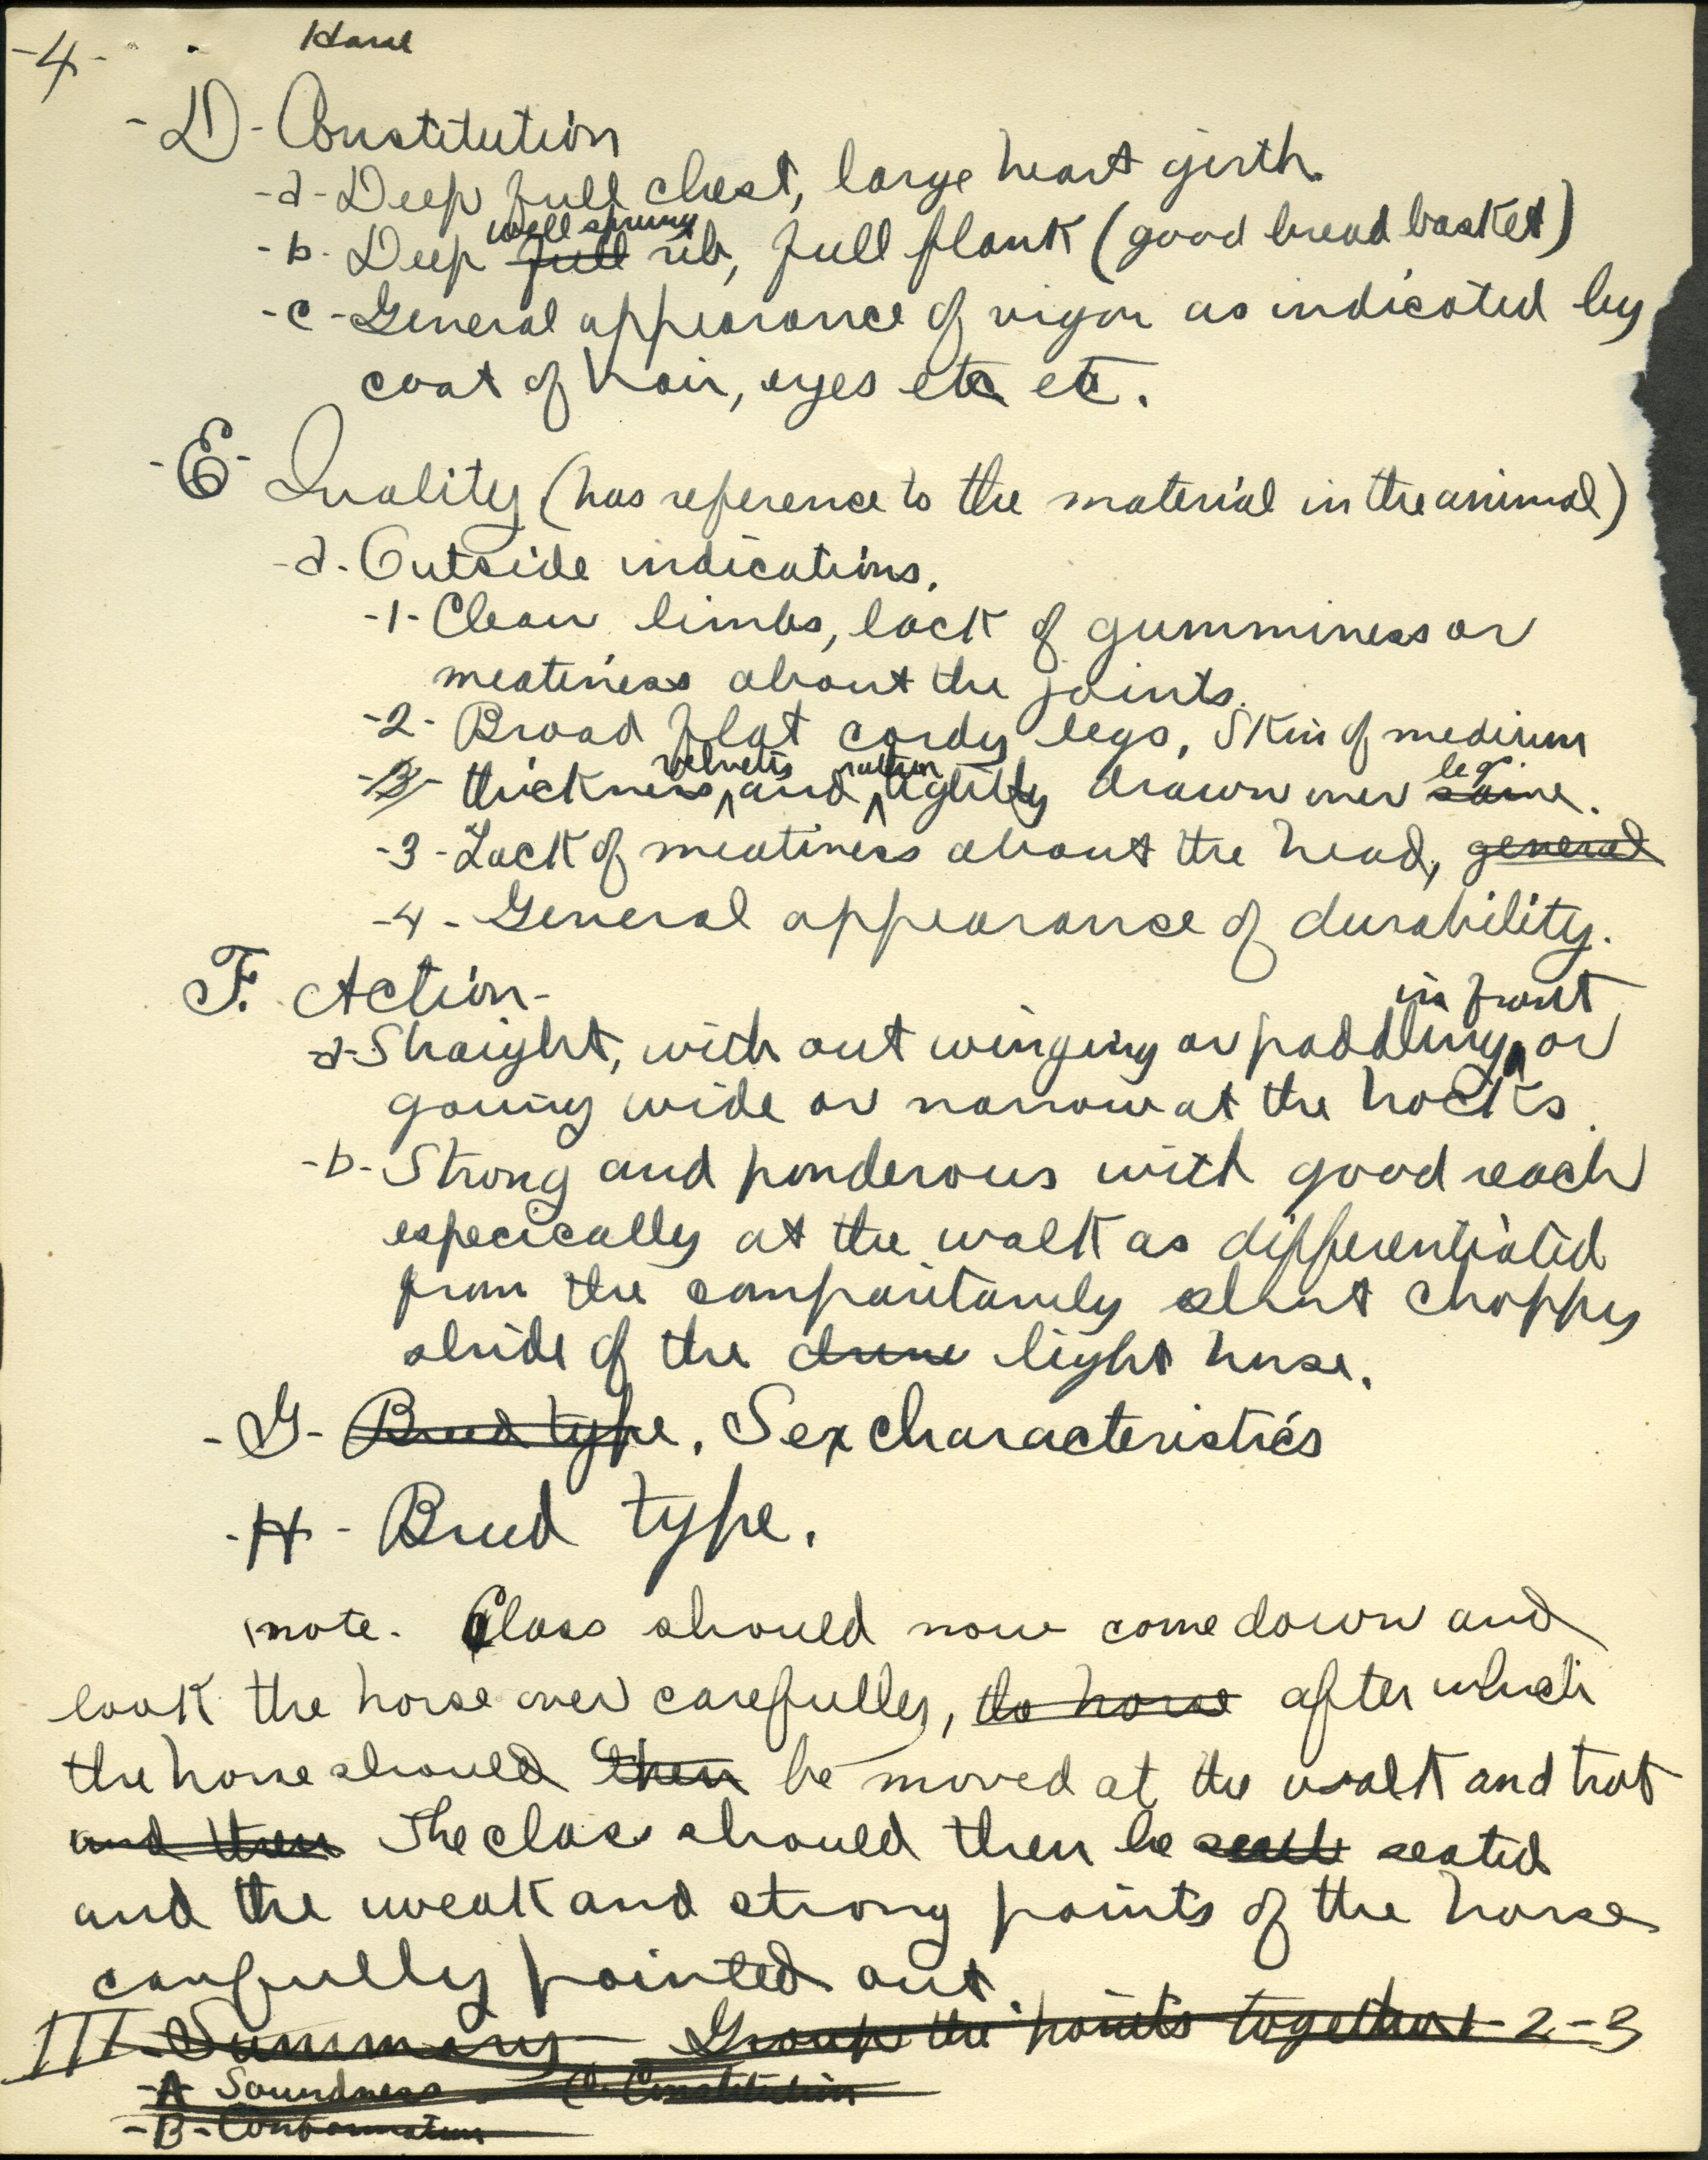 -4- Horse
-D- Constitution
-a- Deep full chest, large heart girth.
well sprung
-b- Deep full rib, full flank (good bread basket)
-c- General appearance of vigor as indicated by
coat of hair, eyes etc etc.
-E- Quality (has reference to the material in the animal)
-a. Outside indications.
-1- Clean limbs, lack of gumminess or
meatiness about the joints.
-2- Broad flat cordy legs, Skin of medium
velvety rather leg.
-3- thickness, and tightly drawn over same.
-3- Lack of meatiness about the head, general
-4- General appearance of durability.
F. Action-
in front
-a- Straight, with out winging or paddling or
going wide or narrow at the hocks.
-b- Strong and ponderous with good reach
especically at the walk as differentiated
from the comparitavely short choppy
stride of the light horse.
-G- Breed type. Sex characteristics
-H- Breed type.
note. Class should now come down and
look the horse over carefully, the horse after which
the horse should then be moved at the walk and trot
and then The class should then be seated
and the weak and strong points of the horse
carfully pointed out.
III. Summary - Group the points together 1-2-3
-A- Soundness - C. Constitution
-B- Conformation